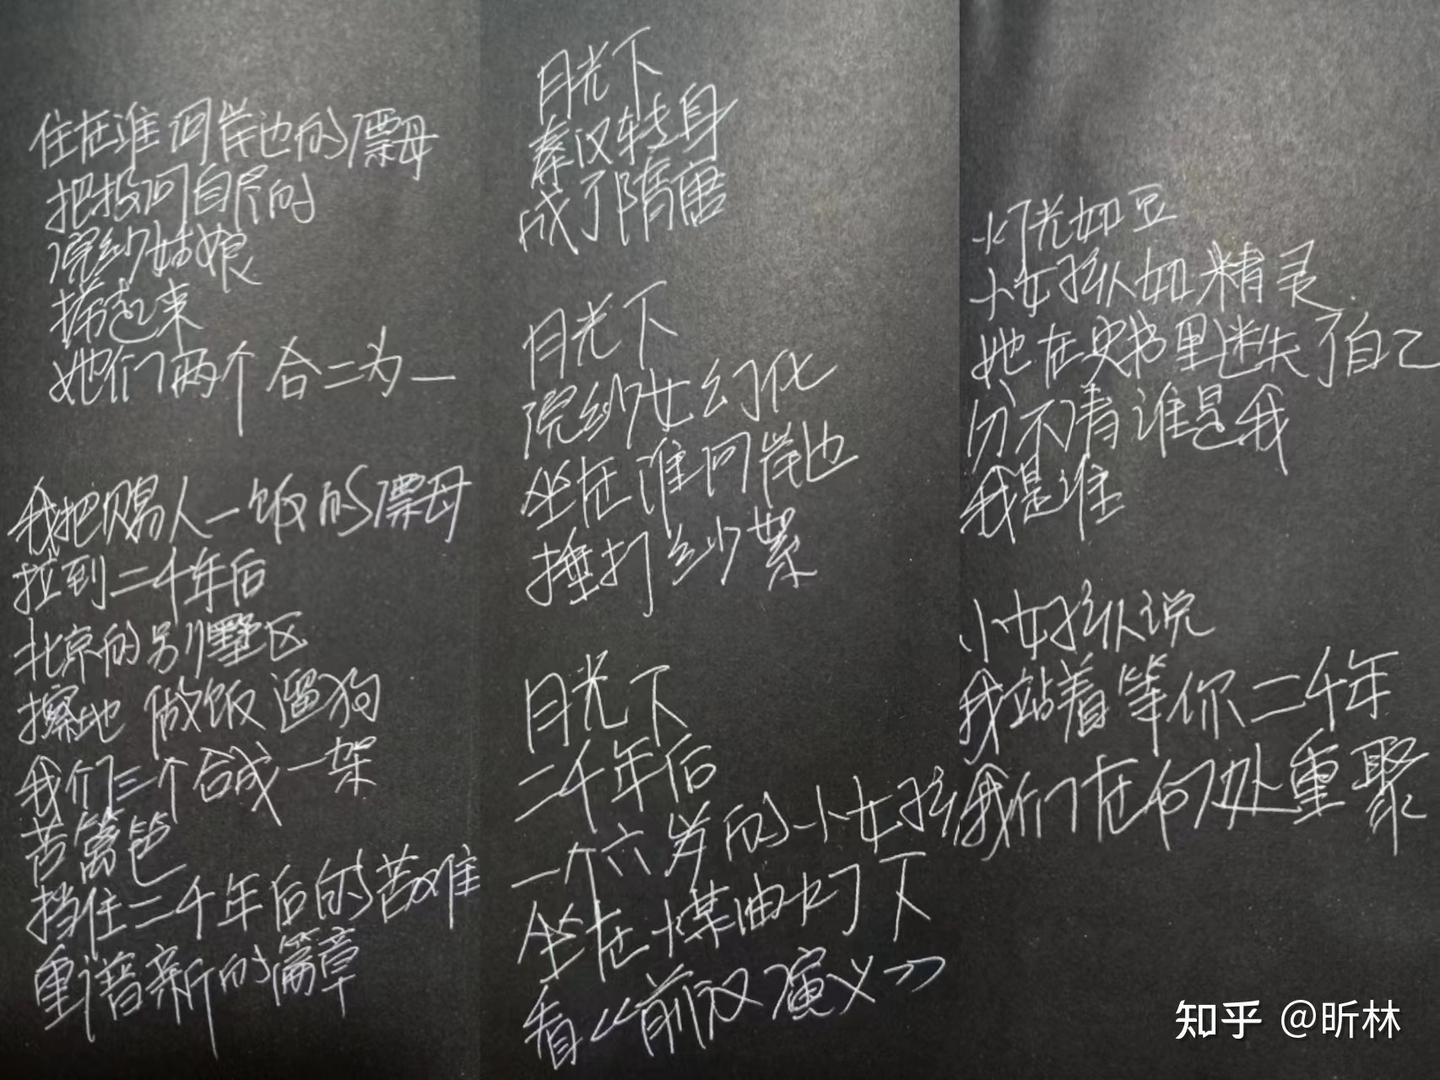 住在淮河岸边的漂母
把投河自尽的
浣纱姑娘
捞起来
她们两个合二为一
我把赐人一饭的漂母
拉到二千年后
北京的别墅区
擦地 做饭 遛狗
我们三个合成一架
苦篱笆
挡住二千年后的苦难
重谱新的篇章
月光下
秦汉转身
成了隋唐
月光下
浣纱女幻化
坐在淮河岸边
捶打纱絮
月光下
二千年后
一个六岁的小女孩
坐在煤油灯下
看《前汉演义》
灯光如豆
小女孩如精灵
她在史书里迷失了自己
分不清谁是我
我是谁
小女孩说
我站着等你二千年
我们在何处重聚
知乎 @昕林